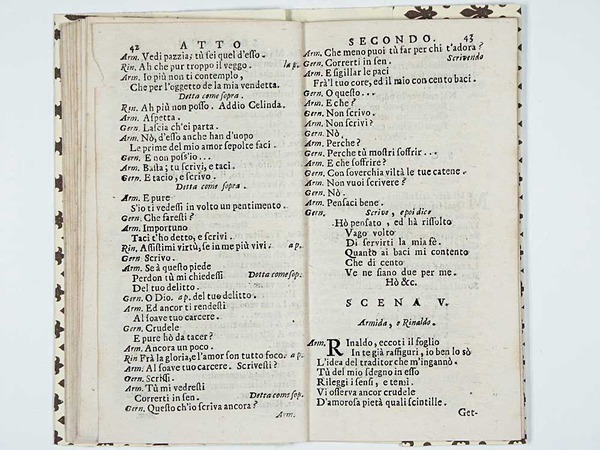 42 ATTO
Arm. Vedi pazzia; tù sei quel d'esso.
Rin. Ah che pur troppo il veggo. la p.
Arm. Io più non ti contemplo,
Che per l'oggetto de la mia vendetta.
Detta come sopra.
Rin. Ah più non posso. Addio Celinda.
Arm. Aspetta.
Gern. Lascia ch'ei parta.
Arm. Nò, d'esso anche han d'uopo
Le prime del mio amor sepolte faci.
Gern. E non poss'io...
Arm. Basta; tu scrivi, e taci.
Gern. E tacio, e scrivo.
Detta come sopra.
Arm. E pure
S'io ti vedessi in volto un pentimento.
Gern. Che faresti?
Arm. Importuno
Taci t'ho detto, e scrivi.
Rin. Assistimi virtù, se in me più vivi. a p.
Gern. Scrivo.
Arm. Se à questo piede
Perdon tù mi chiedessi Detta come sop.
Del tuo delitto.
Gern. O Dio. a p. del tuo delitto.
Arm. Ed ancor ti rendesti
Al soave tuo carcere.
Gern. Crudele
E pure hò da tacer?
Arm. Ancora un poco.
Rin Frà la gloria, e l'amor son tutto foco. a p.
Arm. Al soave tuo carcere. Scrivesti?
Gern. Scrissi.
Arm. Tù mi vedresti
Correrti in sen. Detta come sop.
Gern. Questo ch'io scriva ancora?
Arm.
SECONDO. 43
Arm. Che meno puoi tù far per chi t'adora?
Gern. Correrti in sen. Scrivendo
Arm. E sigillar le paci
Frà'l tuo core, ed il mio con cento baci.
Gern. O questo...
Arm. E che?
Gern. Non scrivo.
Arm. Non scrivi?
Gern. Nò,
Arm. Perche?
Gern. Perche tù mostri soffrir...
Arm. E che soffrire?
Gern. Con soverchia viltà le tue catene.
Arm. Non vuoi scrivere?
Gern. Nò.
Arm. Pensaci bene.
Gern. Scrive, e poi dice
Hò pensato, ed hà risolto
Vago volto
Di servirti la mia fè.
Quanto ai baci mi contento
Che di cento
Ve ne siano due per me.
Hò &c.
SCENA V.
Armida, e Rinaldo.
Arm. RInaldo, eccoti il foglio
In te già raffiguri, io ben lo sò
L'idea del traditor che m'ingannò.
Tù del mio sdegno in esso
Rileggi i sensi, e temi.
Vi osserva ancor crudele
D'amorosa pietà quali scintille.
Get-